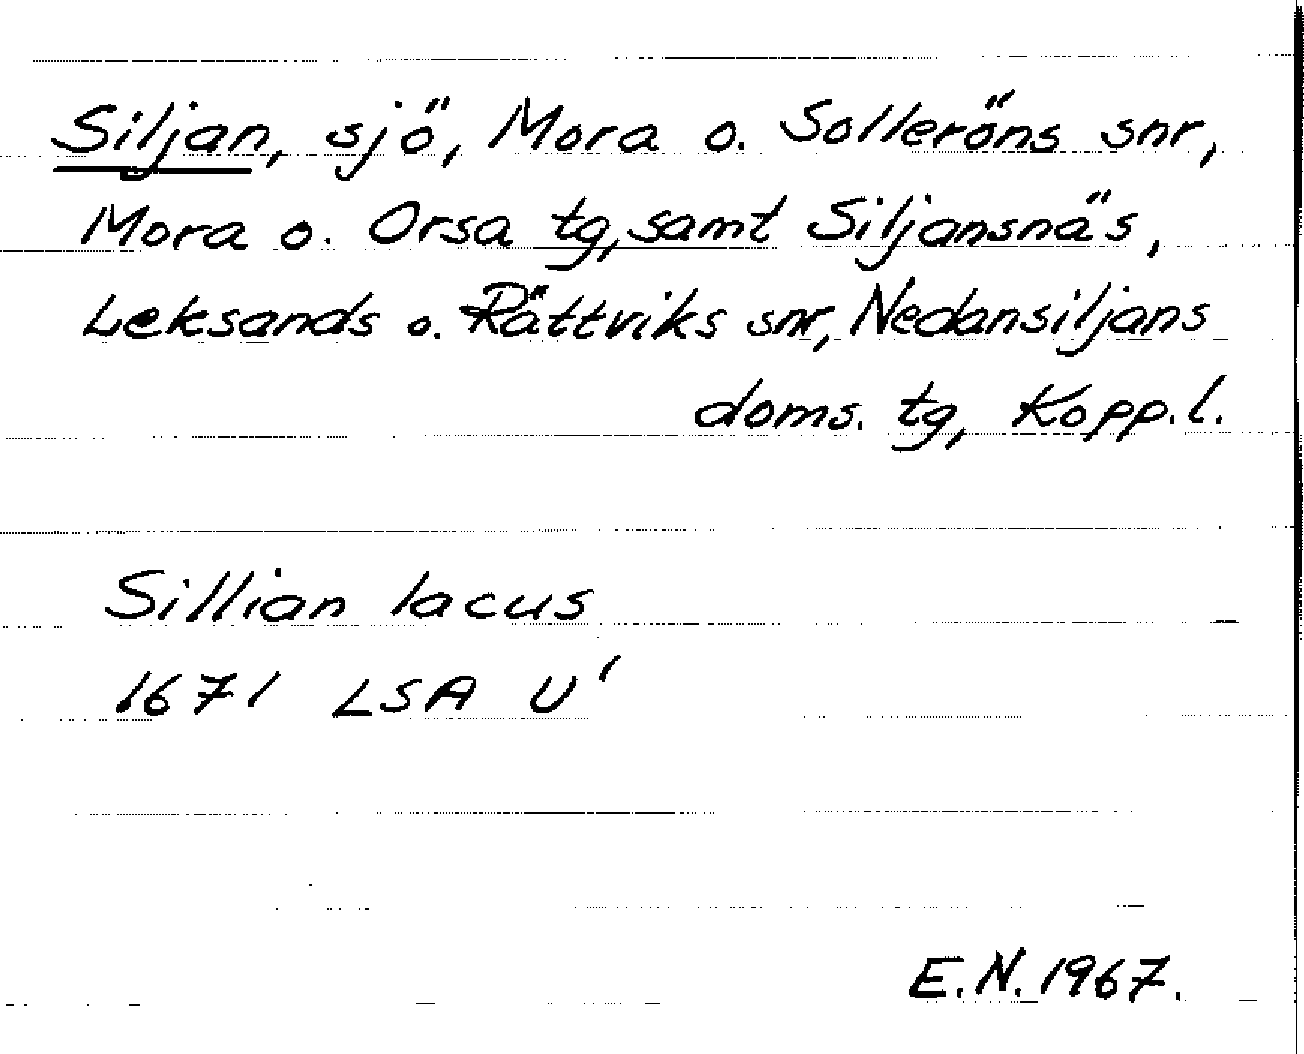 Siljan, sjö, Mora o. Solleröns snr,
Mora o. Orsa tg, samt Siljansnäs,
Leksands o. Rättviks snr, Nedansiljans
doms. tg, Kopp.l.
Sillian lacus
1671 LSA U'
E.N. 1967.